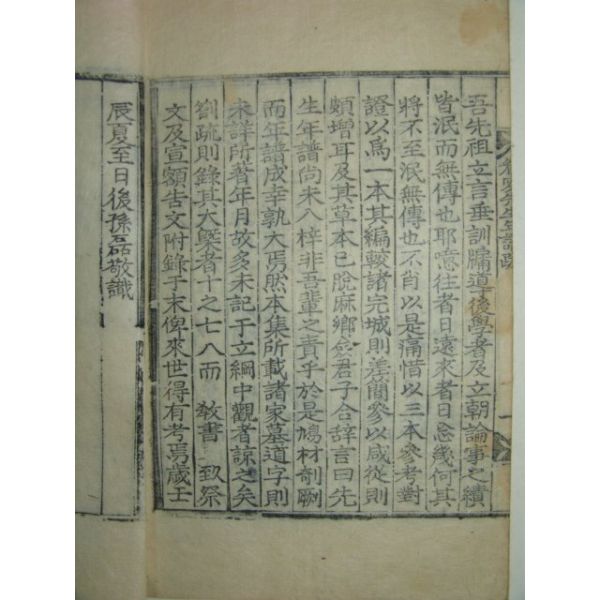 吾先祖立言垂訓牖導後學者及立朝論事之績
皆泯而無傳也耶噫往者日遠來者日急幾何其
將不至泯無傳也不肖以是痛惜以三本參考對
證以爲一本其編較諸完城則差簡參以咸從則
頗增耳及其草本已脫麻鄕僉君子合辭言曰先
生年譜尚未入梓非吾輩之責乎於是鳩材剞劂
而年譜成幸孰大焉然本集所載諸家墓道字則
未詳所著年月故多未記于立綱中觀者諒之矣
劄疏則錄其大槩者十之七八而 敎書 致祭
文及宣額告文附錄于末俾來世得有考焉歲壬
辰夏至日後孫磊敬識